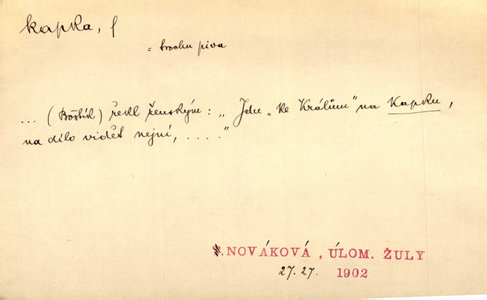 kapka, f
= trochu piva
... (Bořtík) řekl ženským: „Jdu „ke Králům" na Kapku,
na dílo vidět nejní, . . . ."
T. NOVÁKOVÁ, ÚLOM. ŽULY
27.27. 1902